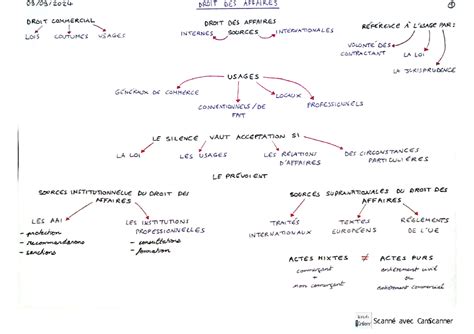 03/03/2024
DROIT DES AFFAIRES
①
DROIT COMMERCIAL
LOIS COUTUMES USAGES
DROIT DES AFFAIRES
SOURCES
INTERNES INTERNATIONALES
RÉFÉRENCE À L'USAGE PAR :
VOLONTÉ DES
CONTRACTANT
LA LOI
LA JURISPRUDENCE
USAGES
GÉNÉRAUX DE COMMERCE
CONVENTIONNELS / DE
FAIT
LOCAUX
PROFESSIONNELS
LE SILENCE VAUT ACCEPTATION SI
LA LOI
LES USAGES
LES RELATIONS
D'AFFAIRES
DES CIRCONSTANCES
PARTICULIÈRES
LE PRÉVOIENT
SOURCES INSTITUTIONNELLE DU DROIT DES
AFFAIRES
LES AAI
- protection
- recommandations
- sanctions
LES INSTITUTIONS
PROFESSIONNELLES
- consultations
- formation
SOURCES SUPRANATIONALES DU DROIT DES
AFFAIRES
TRAITÉS
INTERNATIONAUX
TEXTES
EUROPÉENS
RÉGLEMENTS
DE L'UE
ACTES MIXTES ≠ ACTES PURS
commerçant
+
non commerçant
entièrement civil
ou
entièrement commercial
Scanné avec CamScanner